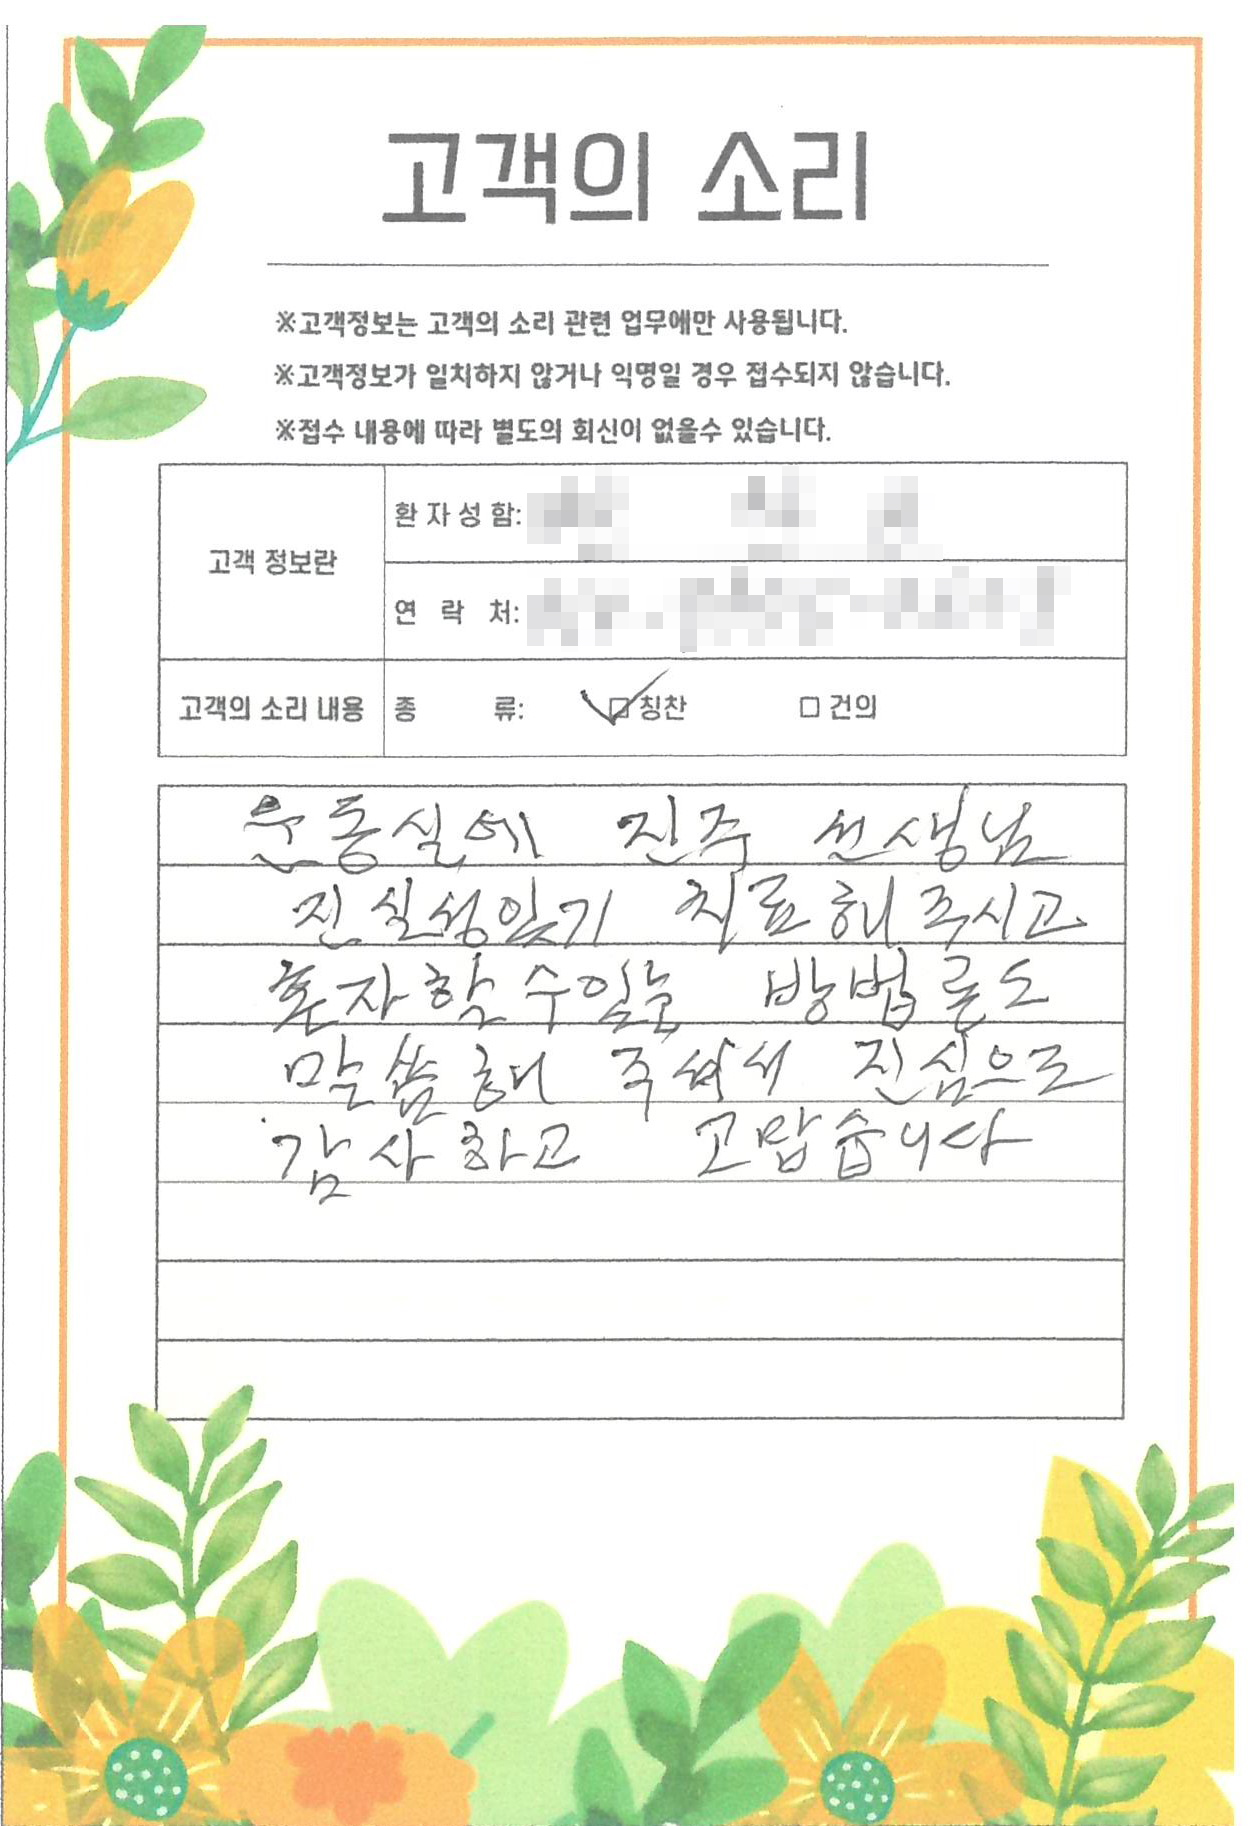 고객의 소리
※고객정보는 고객의 소리 관련 업무에만 사용됩니다.
※고객정보가 일치하지 않거나 익명일 경우 접수되지 않습니다.
※접수 내용에 따라 별도의 회신이 없을수 있습니다.
고객 정보란
환자성함:
연 락 처:
고객의 소리 내용
종 류: ☑ 칭찬 □ 건의
운동실에 진주 선생님
진실성있기 치료해 주시고
혼자할수있는 방법론도
말씀해 주셔서 진심으로
감사하고 고맙습니다